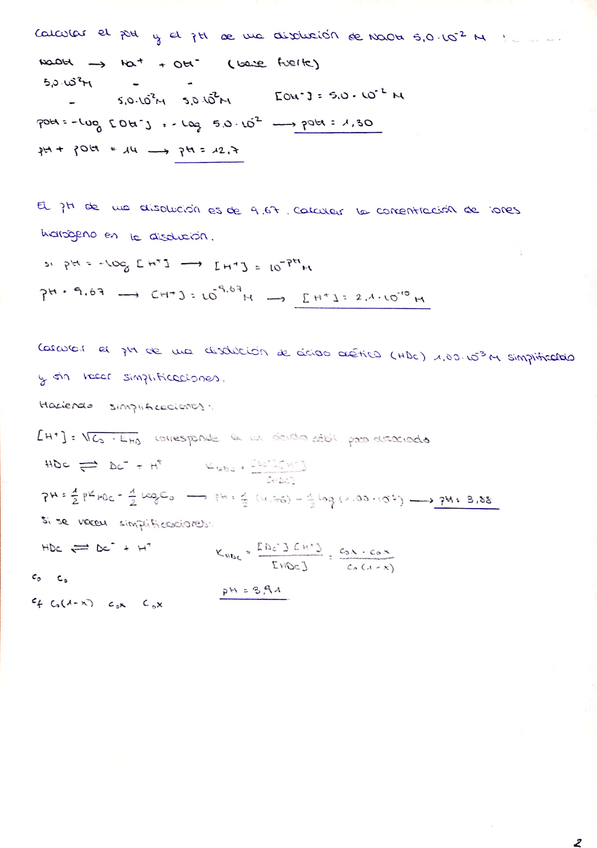 Calcular el pOH y el pH de una disolución de NaOH 5,0·10⁻² M
NaOH → Na⁺ + OH⁻ (base fuerte)
5,0·10⁻²M - -
- 5,0·10⁻²M 5,0·10⁻²M [OH⁻] = 5,0·10⁻² M
pOH = -log [OH⁻] = -log 5,0·10⁻² → pOH = 1,30
pH + pOH = 14 → pH = 12,7
El pH de una disolución es de 9,67. Calcular la concentración de iones
hidrógeno en la disolución.
Si pH = -log [H⁺] → [H⁺] = 10⁻ᵖᴴ M
pH = 9,67 → [H⁺] = 10⁻⁹·⁶⁷ M → [H⁺] = 2,1·10⁻¹⁰ M
Calcular el pH de una disolución de ácido acético (HAc) 1,00·10⁻³ M simplificando
y sin hacer simplificaciones.
Haciendo simplificaciones:
[H⁺] = √C₀ · corresponde a un ácido débil poco disociado
HAc ⇌ Ac⁻ + H⁺
pH = ½ pK HAc - ½ log C₀ → pH = ½ (4,76) - ½ log (1,00·10⁻³) → pH = 3,88
Si se hacen simplificaciones:
HAc ⇌ Ac⁻ + H⁺ K HAc = [Ac⁻][H⁺] / [HAc] = C₀x · C₀x / C₀(1-x)
C₀ C₀
Cf C₀(1-x) C₀x C₀x pH = 3,91
2